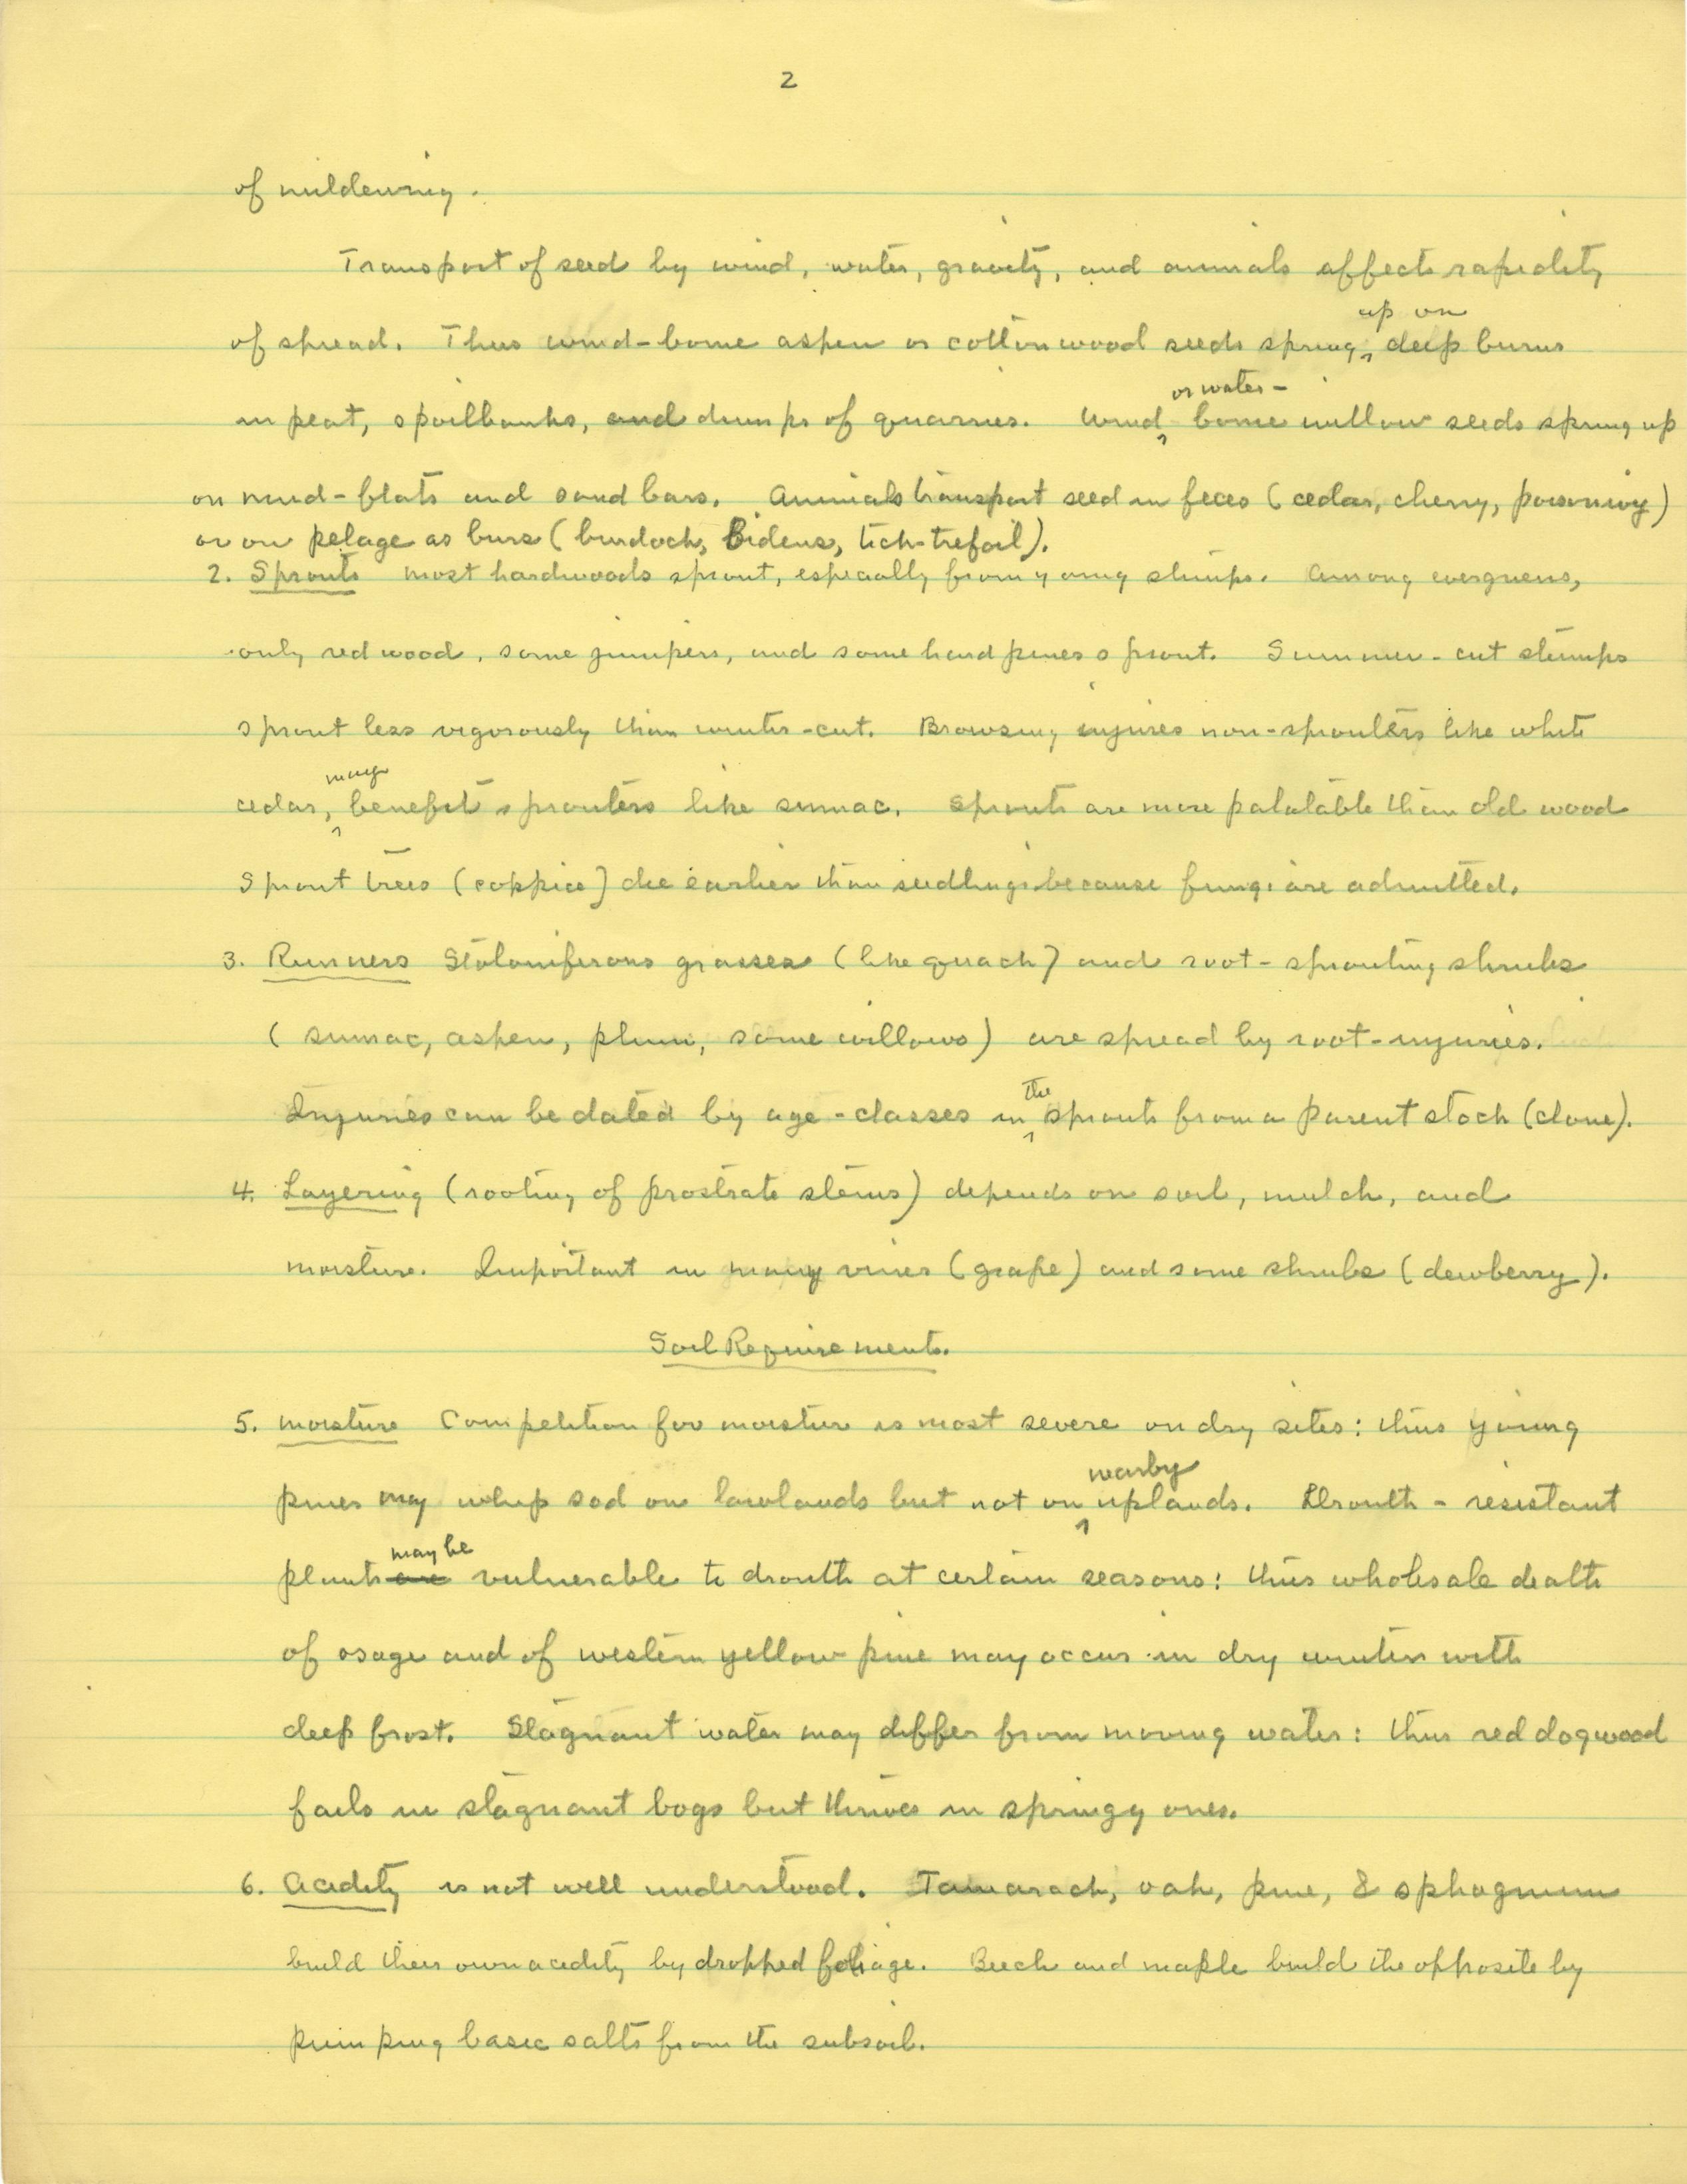 2
of mildewing.
Transport of seed by wind, water, gravity, and animals affects rapidity
of spread. Thus wind-borne aspen or cottonwood seeds spring up on deep burns
in peat, spoilbanks, and dumps of quarries. Wind or water-borne willow seeds spring up
on mud-flats and sand bars. Animals transport seed in feces (cedar, cherry, poison ivy)
or on pelage as burs (burdock, Bidens, tick-trefoil).
2. Sprouts most hardwoods sprout, especially from young stumps. Among evergreens,
only redwood, some junipers, and some hard pines sprout. Summer-cut stumps
sprout less vigorously than winter-cut. Browsing injures non-sprouters like white
cedar, may benefit sprouters like sumac. Sprouts are more palatable than old wood
Sprout trees (coppice) die earlier than seedlings because fungi are admitted.
3. Runners Stoloniferous grasses (like quack) and root-sprouting shrubs
(sumac, aspen, plum, some willows) are spread by root-injuries.
Injuries can be dated by age-classes in the sprouts from a parent stock (clone).
4. Layering (rooting of prostrate stems) depends on soil, mulch, and
moisture. Important in many vines (grape) and some shrubs (dewberry).
Soil Requirements.
5. moisture Competition for moisture is most severe on dry sites: thus young
pines may whip sod on lowlands but not on nearby uplands. Drouth-resistant
plants are may be vulnerable to drouth at certain seasons: thus wholesale death
of osage and of western yellow pine may occur in dry winters with
deep frost. Stagnant water may differ from moving water: thus red dogwood
fails in stagnant bogs but thrives in springy ones.
6. Acidity is not well understood. Tamarack, oak, pine, & sphagnum
build their own acidity by dropped foliage. Beech and maple build the opposite by
pumping basic salts from the subsoil.